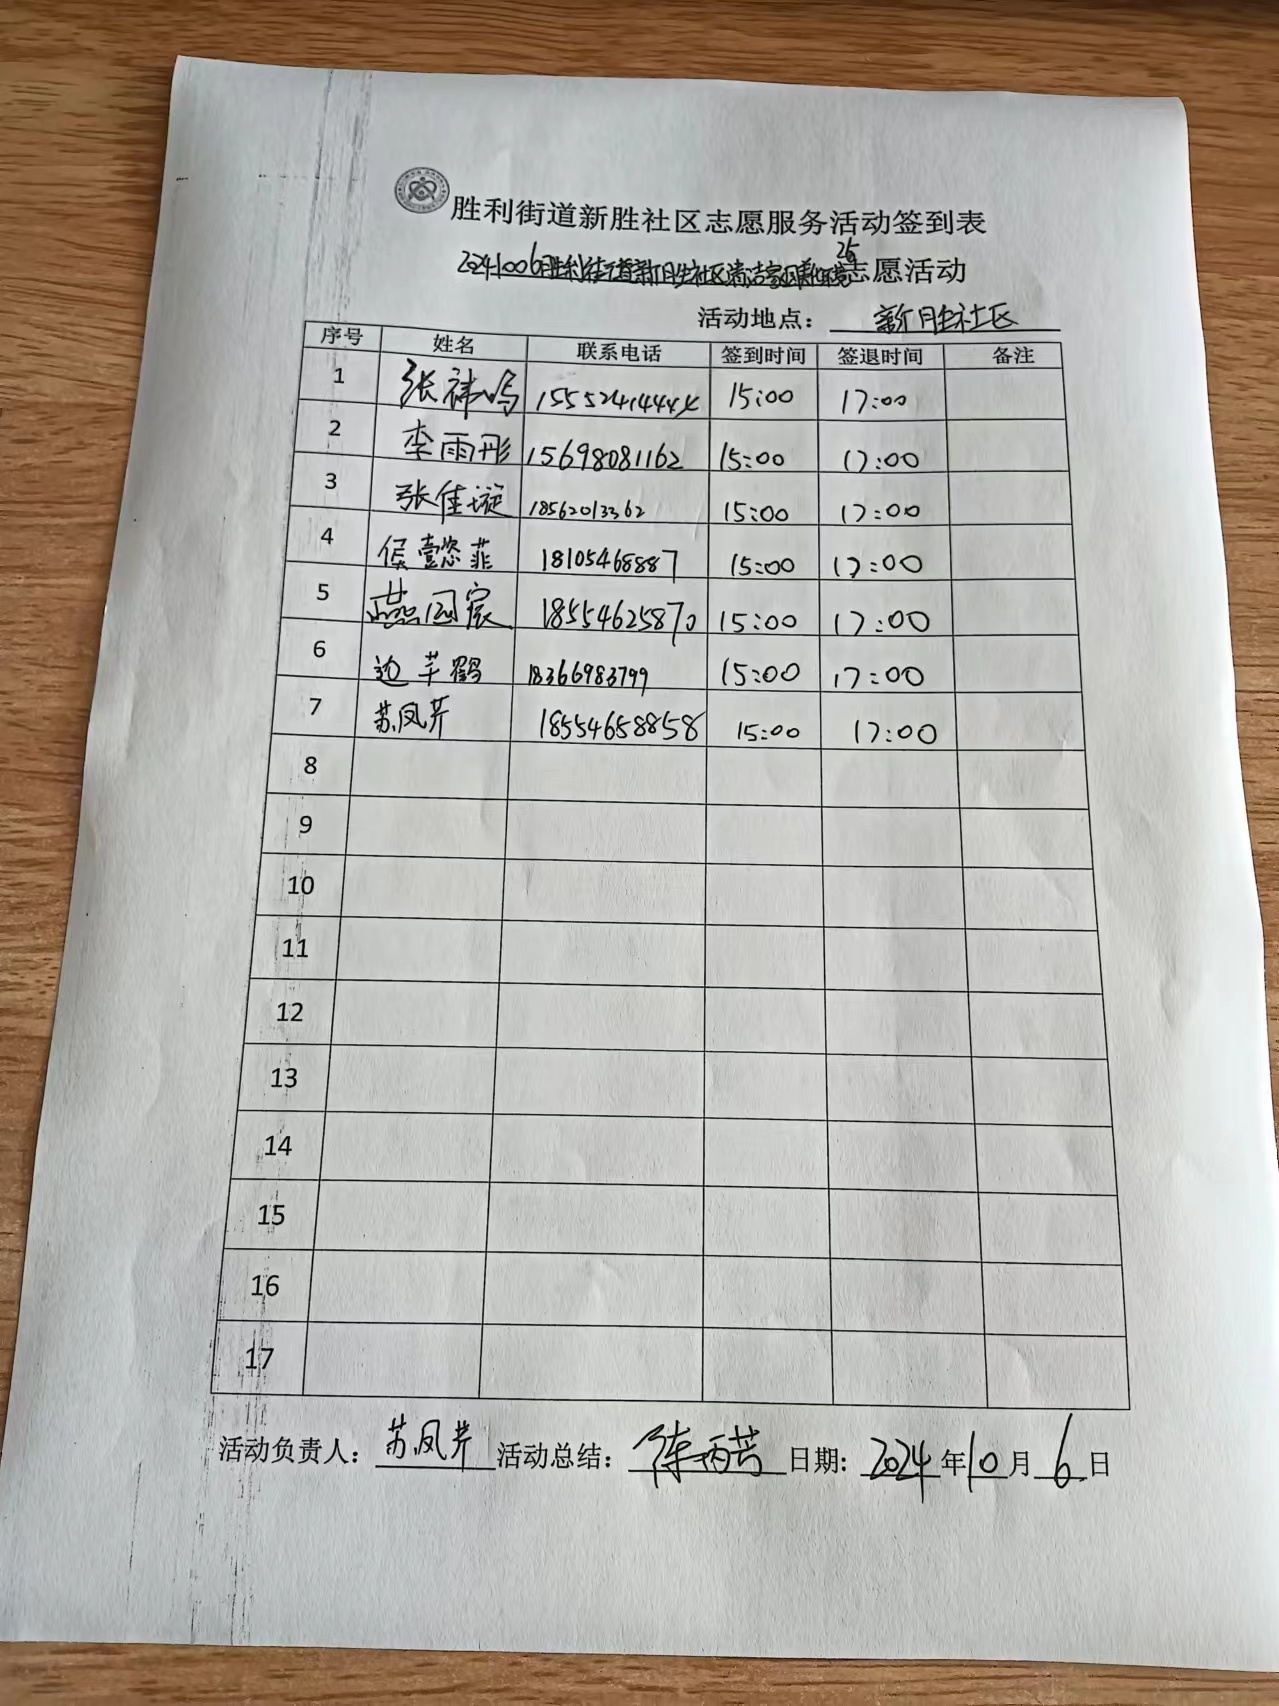 胜利街道新胜社区志愿服务活动签到表
20241006胜利街道新胜社区清洁家园美化环境26志愿活动
活动地点：新胜社区
序号 姓名 联系电话 签到时间 签退时间 备注
1 张祎鸣 1555241444 15:00 17:00
2 李雨彤 15698081162 15:00 17:00
3 张佳璇 18562013362 15:00 17:00
4 侯懿恣菲 18105468887 15:00 17:00
5 燕国宸 18554625870 15:00 17:00
6 边芊鹤 18366983799 15:00 17:00
7 苏凤芹 18554658858 15:00 17:00
8
9
10
11
12
13
14
15
16
17
活动负责人：苏凤芹 活动总结：陈丙芳 日期：2024年10月6日